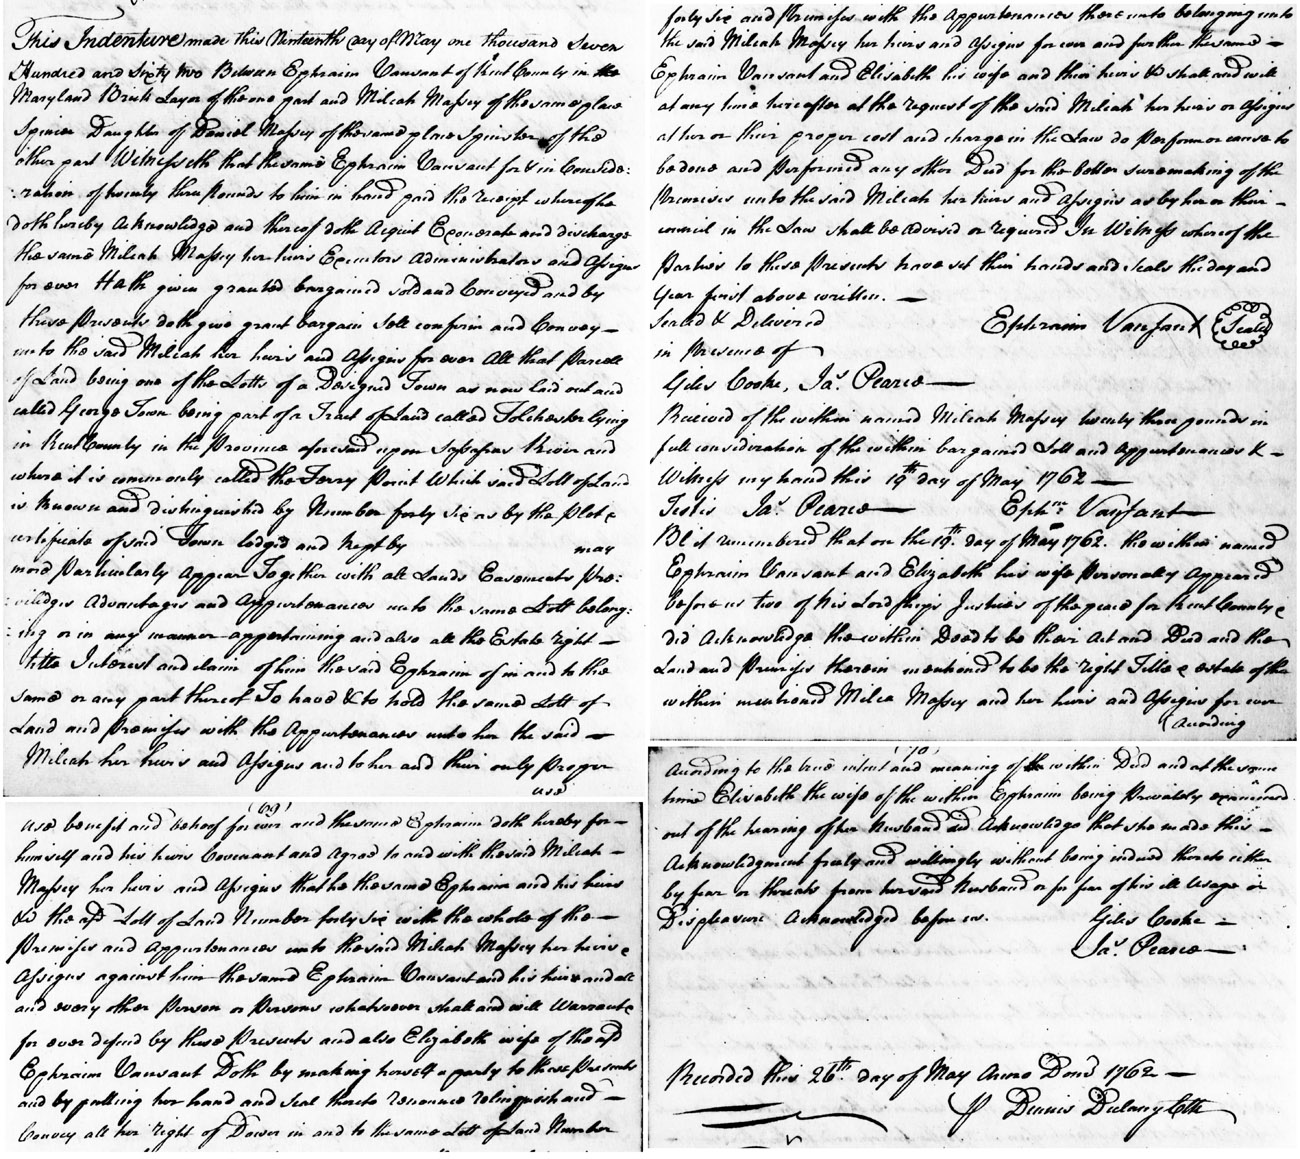 This Indenture made this Ninteenth day of May one thousand Seven
Hundred and Sixty two Between Ephraim Vansant of Kent County in the
Maryland Brick Layor of the one part and Mileah Massey of the same place
Spinser Daughter of Daniel Massey of the same place Spinster of the
other part Witnesseth that the same Ephraim Vansant for & in Conside:
:ration of twenty three Pounds to him in hand paid the receipt whereof he
doth hereby Acknowledge and thereof doth Acquit Exonerate and discharge
the same Mileah Massey her heirs Executors Administrators and Assigns
for ever Hath given granted bargained sold and Conveyed and by
these Presents doth give grant bargain Sell confirm and Convey –
unto the said Mileah her heirs and Assigns for ever All that Parcell
of Land being one of the Lotts of a Designed Town as now laid out and
called George Town being part of a Tract of Land called Tolchester lying
in Kent County in the Province aforesaid upon Sassafras River and
where it is commonly called the Ferry Point Which said Lott of Land
is known and distinguished by Number forty Six as by the Plot &
certificate of said Town lodged and kept by may
more Particularly Appear Together with all Lands Easements Pre:
:viledges Advantages and Appurtenances unto the same Lott belong:
:ing or in any manner appertaining and also all the Estate right –
title Interest and claim of him the said Ephraim of in and to the
same or any part thereof To have & to hold the same Lott of
Land and Premisses with the Appurtenances unto her the said –
Mileah her heirs and Assigns and to her and their only proper
use
(69)
use benefit and behoof for ever and the same Ephraim doth hereby for –
himself and his heirs Covenant and Agree to and with the said Mileah –
Massey her heirs and Assigns that he the same Ephraim and his heirs
&c the afd Lott of Land Number forty six with the whole of the –
Premisses and Appurtenances unto the said Mileah Massey her heirs &
Assigns against him the same Ephraim Vansant and his heirs and all
and every other Person or Persons whatsoever shall and will Warrant &
for ever defend by these Presents and also Elizabeth wife of the afd
Ephraim Vansant Doth by making herself a party to these Presents
and by putting her hand and Seal thereto renounce relinquish and –
Convey all her right of Dower in and to the same Lott of Land Number
forty six and Premisses with the Appurtenances there unto belonging unto
the said Mileah Massey her heirs and Assigns for ever and further the same –
Ephraim Vansant and Elisabeth his wife and their heirs &c shall and will
at any time hereafter at the request of the said Mileah her heirs or Assigns
at her or their proper cost and charge in the Law do Perform or cause to
be done and Performed any other Deed for the better sure making of the
Premises unto the said Mileah her heirs and Assigns as by her or their –
council in the Law shall be advised or required In Witness whereof the
Parties to these Presents have set their hands and Seals the day and
Year first above written. –
Sealed & Delivered Ephraim Vansant (Seale)
in Presence of
Giles Cooke, Jas. Pearce –
Received of the within named Mileah Massey twenty three pounds in
full consideration of the within bargained Lott and Appurtenances &c –
Witness my hand this 19th day of May 1762 –
Testis Jas. Pearce – Ephm: Vansant –
BE it remembered that on the 19th. day of May 1762. the within named
Ephraim Vansant and Elizabeth his wife Personally Appeared
before us two of his Lordships Justices of the peace for Kent County &
did Acknowledge the within Deed to be their Act and Deed and the
Land and Premisses therein mentioned to be the right Title & estate of the
within mentioned Milea Massey and her heirs and Assigns for ever
(Acording
(70)
Acording to the true intent and meaning of the within Deed and at the same
time Elisabeth the wife of the within Ephraim being Privately examined
out of the hearing of her Husband did Acknowledge that she made this –
Acknowledgment freely and willingly without being induced thereto either
by fear or threats from her said Husband or for fear of his ill Usage or
Displeasure Acknowledged before us. Giles Cooke –
Jas. Pearce –
Recorded this 26th. day of May Anno Domi 1762 –
P Dennis Dulany Clk